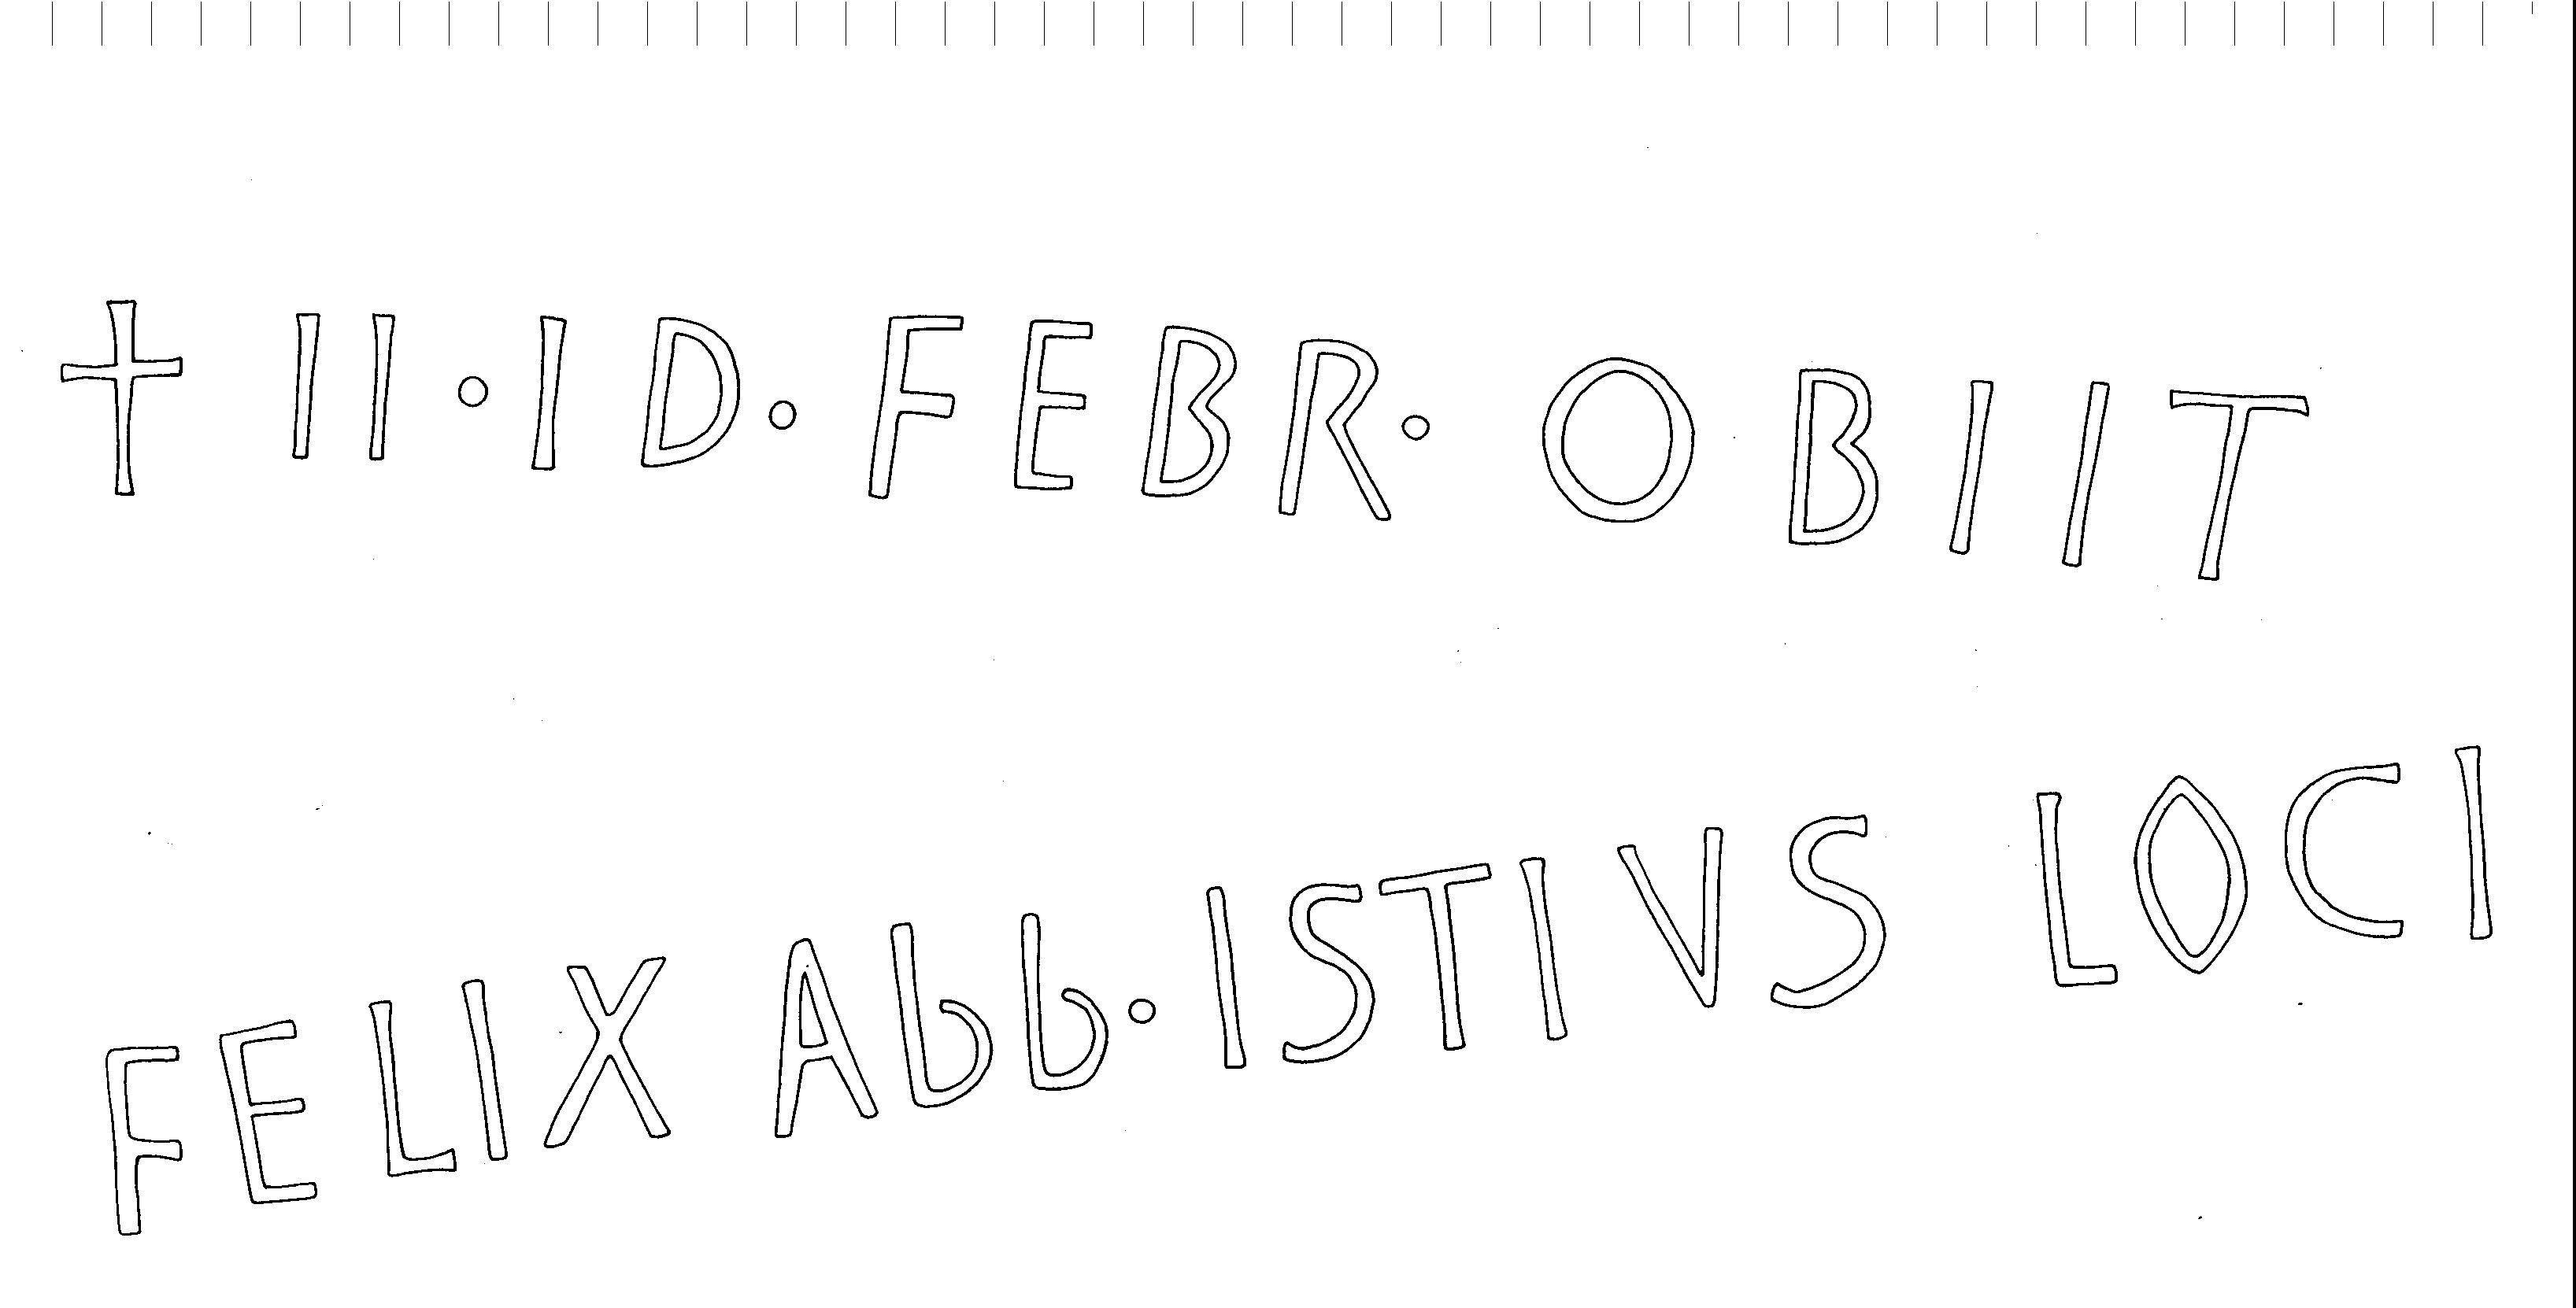 † II · ID · FEBR · OBIIT
FELIX Abb · ISTIVS LOCI